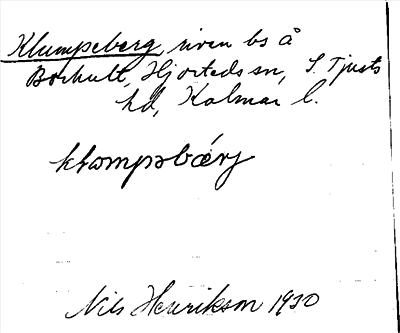 Klumpeberg, riven bs å
Borhult, Hjorteds sn, S. Tjusts
hd, Kalmar l.
klompəbærj
Nils Henrikson 1930